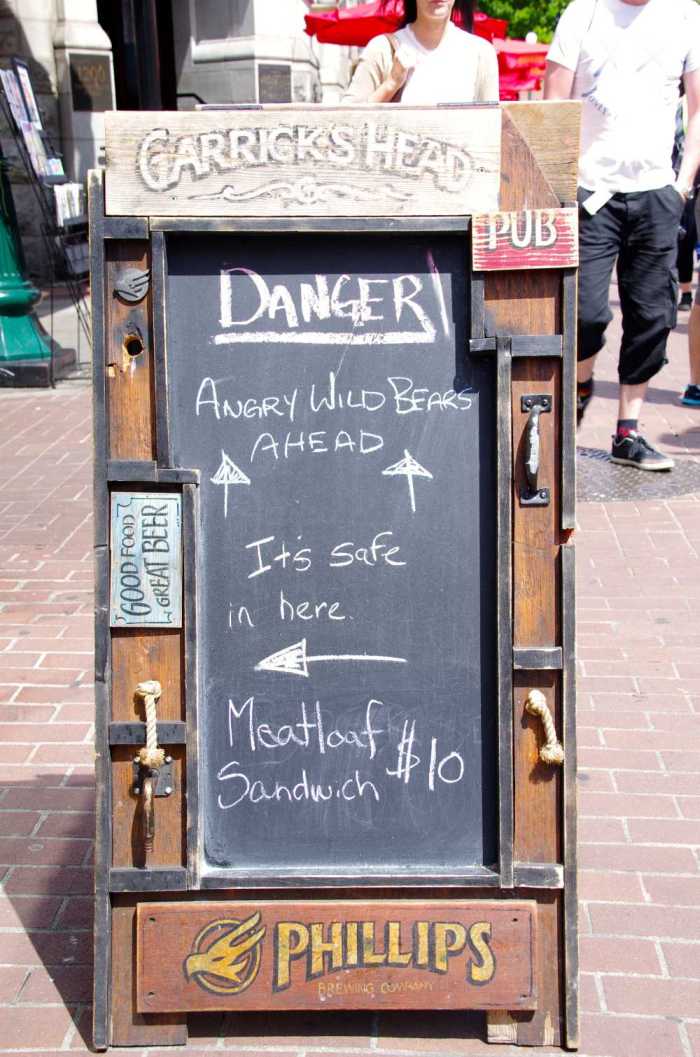 GARRICK'S HEAD
PUB
DANGER!
ANGRY WILD BEARS
AHEAD
It's safe
in here.
Meatloaf
Sandwich $10
GOOD FOOD
GREAT BEER
PHILLIPS
BREWING COMPANY